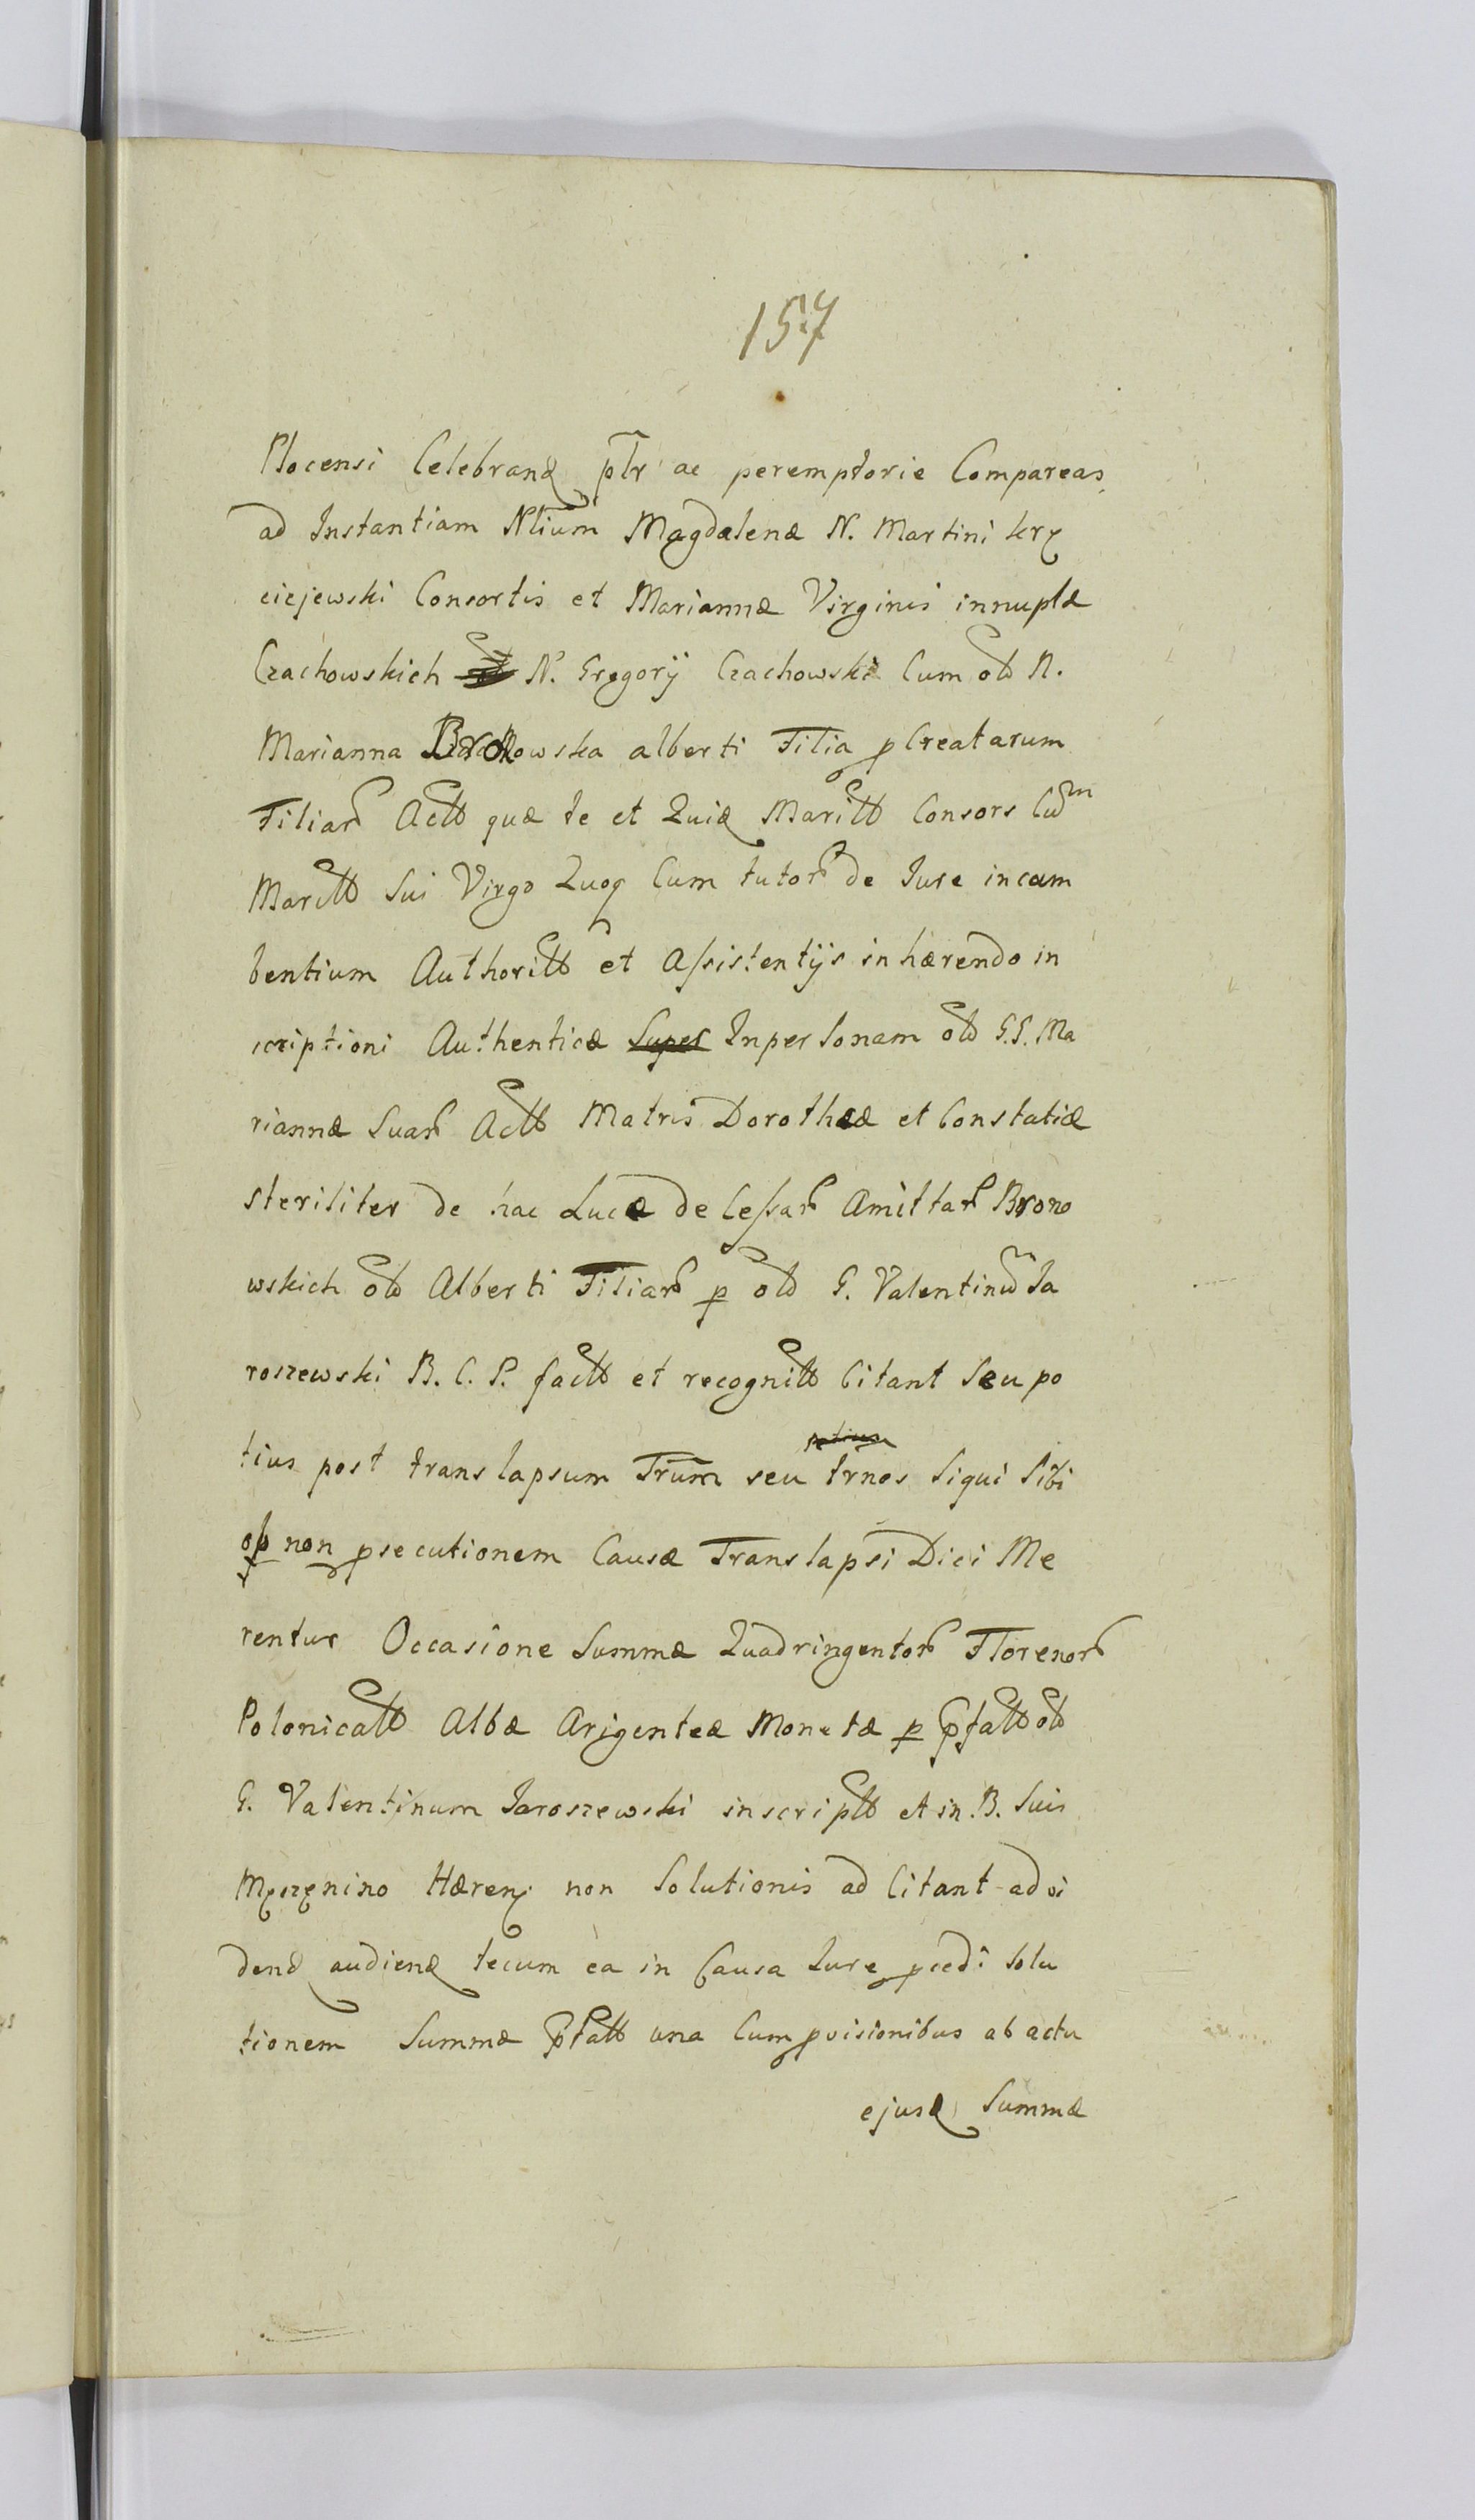 157
Plocensi Celebrand ptr ac peremptorie Compareas
ad Instantiam Nlium Magdalenæ N. Martini krz
eiejewski Consortis et Mariannæ Virginis innuptæ
Czachowskich N. Gregorij Czachowski Cum olō N.
Marianna alberti Filia pCreatarum
Filiar Actō quæ te et Quid Maritō Consors Cūm
Maritō Sui Virgo Quoq Cum tutor de Jure incum
bentium Authoritō et Assistentijs inhærendo in
scriptioni Authenticæ Super Inpersonam olō G.G. Ma
riannæ Suar Actō Matris Dorotheæ et Constatiæ
steriliter de hac Lucæ de Cessar Amittar Brono
wskich olō Alberti Filiar p olō G. Valentinū Ja
roszewski B. C. P. factō et recognitō Citant Seu po
tius post translapsum Trūm seu trnos Siqui Sibi
ob non psecutionem Causæ Translapsi Dici Me
rentur Occasione Summæ Quadringentor Florenor
Polonicatō Albæ Arigenteæ Monetæ p pfatō olō
G. Valentinum Jaroszewski inscriptō et in B. Suis
Męszęnino Hæren non Solutionis ad Citant advi
dend audiend tecum ea in Causa Jure pcedi Solu
tionem Summæ pfatō una Cum pvisionibus ab actu
ejusd Summæ